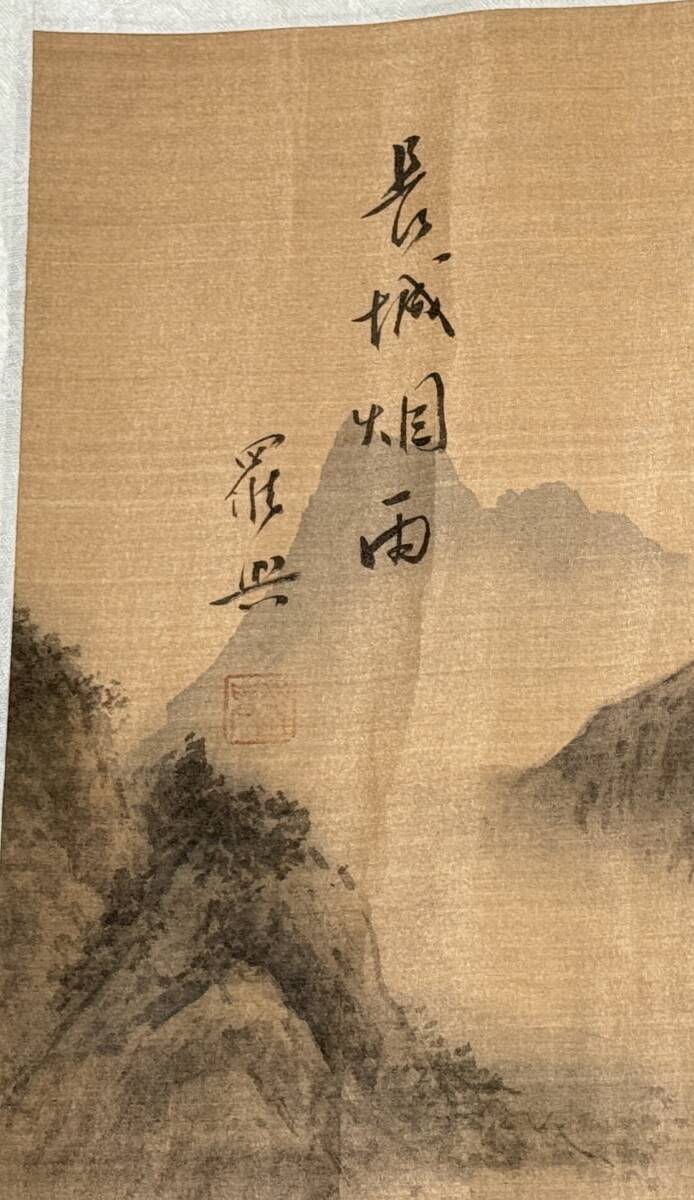 長城烟雨
羅興